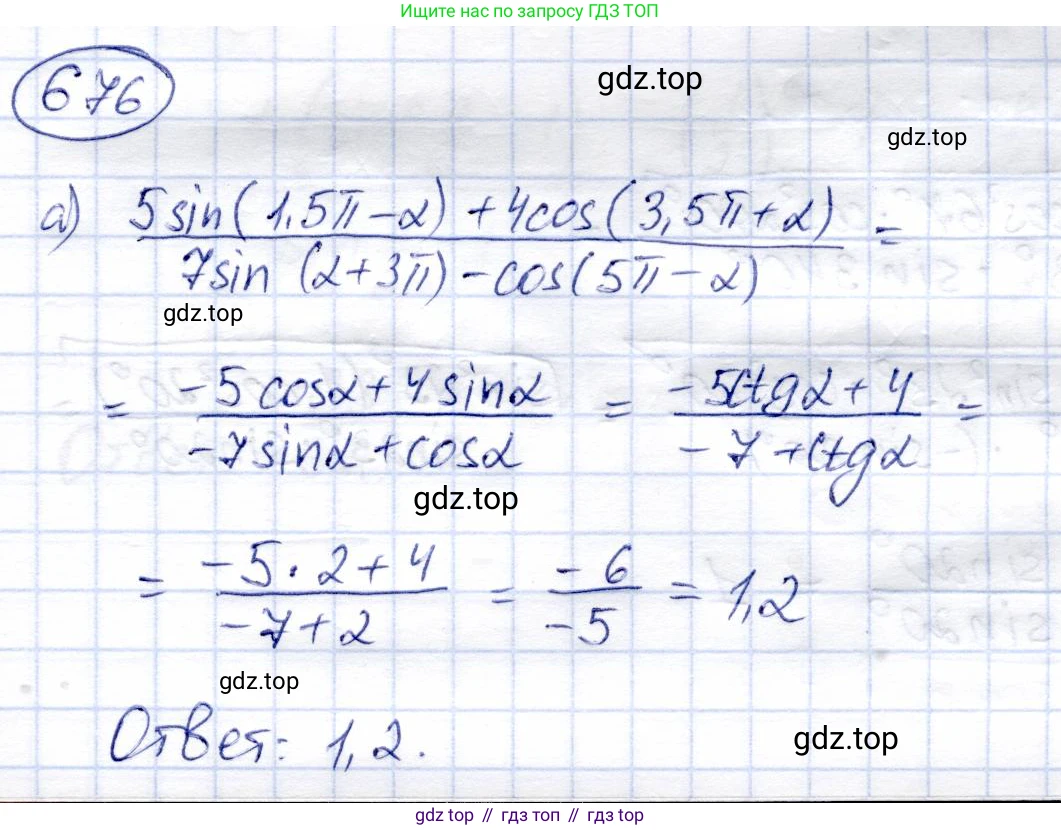 Ищите нас по запросу ГДЗ ТОП
676
gdz.top
gdz.top
а) (5sin(1,5π-α) + 4cos(3,5π+α)) / (7sin (α+3π) - cos(5π-α)) =
gdz.top
= (-5cosα + 4sinα) / (-7sinα + cosα) = (-5ctgα + 4) / (-7 + ctgα) =
gdz.top
= (-5·2+4) / (-7+2) = (-6) / (-5) = 1,2
gdz.top
Ответ: 1,2.
gdz.top
gdz.top // гдз топ // gdz.top